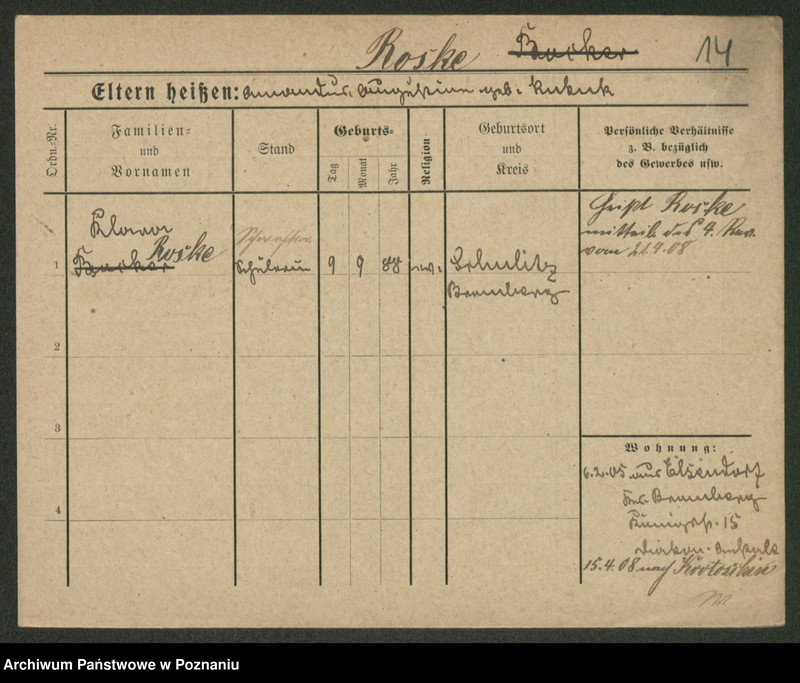 Roske 14
Eltern heißen: Amandus. Augustine geb. Kubuk
Ordn.=Nr.
Familien=
und
Vornamen
Stand
Geburts=
Tag
Monat
Jahr
Religion
Geburtsort
und
Kreis
Persönliche Verhältnisse
z. B. bezüglich
des Gewerbes usw.
Klara
Roske
Schwester
1 Schülerin 9 9 88 ev. Schulitz
Bromberg
heißt Roske
mitteil. des 4. Rev.
vom 21.4.08
2
3
4
Wohnung:
6.2.05 aus Elsendorf
Krs. Bromberg
Königstr. 15
Diakon. Anstalt
15.4.08 nach Krotoschin
Archiwum Państwowe w Poznaniu